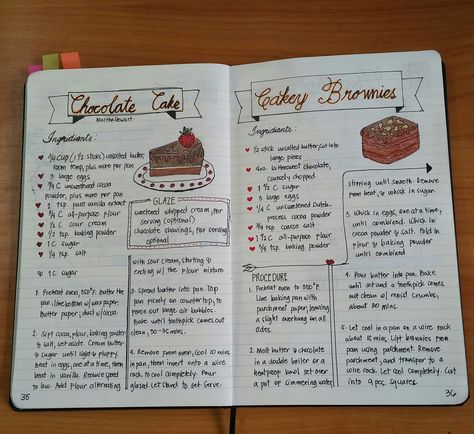 Chocolate Cake
Martha Stewart
Ingredients:
3/4 cup (1 1/2 sticks) unsalted butter,
room temp, plus more for pan
3 large eggs
3/4 C unsweetened cocoa
powder, plus more for pan
1 tsp pure vanilla extract
3/4 C all-purpose flour
1/2 C sour cream
1/2 tsp baking powder
1 C sugar
1/4 tsp salt
1 C sugar
GLAZE
sweetened whipped cream, for
serving (optional)
chocolate shavings, for serving
(optional)
1. Prevent oven, 350°F. Butter the
pan; line bottom w/ wax paper.
Butter paper; dust w/ cocoa
2. Sift cocoa, flour, baking powder
& salt, set aside. Cream butter
& sugar until light & fluffy.
Beat in eggs, one at a time, then
beat in vanilla. Reduce speed
to low. Add flour alternating
with sour cream, starting &
ending w/ the flour mixture
3. Spread batter into pan. Tap
pan firmly on countertop, to
force out large air bubbles.
Bake until toothpick comes out
clean, 30-35 mins.
4. Remove from oven, cool 10 mins
in pan, then invert onto a wire
rack to cool completely. Pour
glaze. Let stand to set. Serve.
35
Cakey Brownies
Ingredients:
1/2 stick unsalted butter, cut into
large pieces
4oz bittersweet chocolate,
coarsely chopped
1 1/2 C sugar
3 large eggs
1/4 C unsweetened Dutch-
process cocoa powder
1/2 tsp coarse salt
1 1/2 C all-purpose flour
3/4 tsp baking powder
PROCEDURE
1. Prevent oven to 350°F.
Line baking pan with
parchment paper, leaving
a slight overhang on all
sides.
2. Melt butter & chocolate
in a double boiler or a
heatproof bowl set over
a pot of simmering water
stirring until smooth. Remove
from heat, & whisk in sugar.
3. Whisk in eggs, one at a time,
until combined. Whisk in
cocoa powder & salt. Fold in
flour & baking powder
until combined
4. Pour batter into pan. Bake
until set and a toothpick comes
out clean w/ moist crumbs,
about 30 mins.
5. Let cool in a pan on a wire rack
about 15 mins. Lift brownies from
pan using parchment. Remove
parchment, and transfer to a
wire rack. Let cool completely. Cut
into 9 pcs. squares.
36